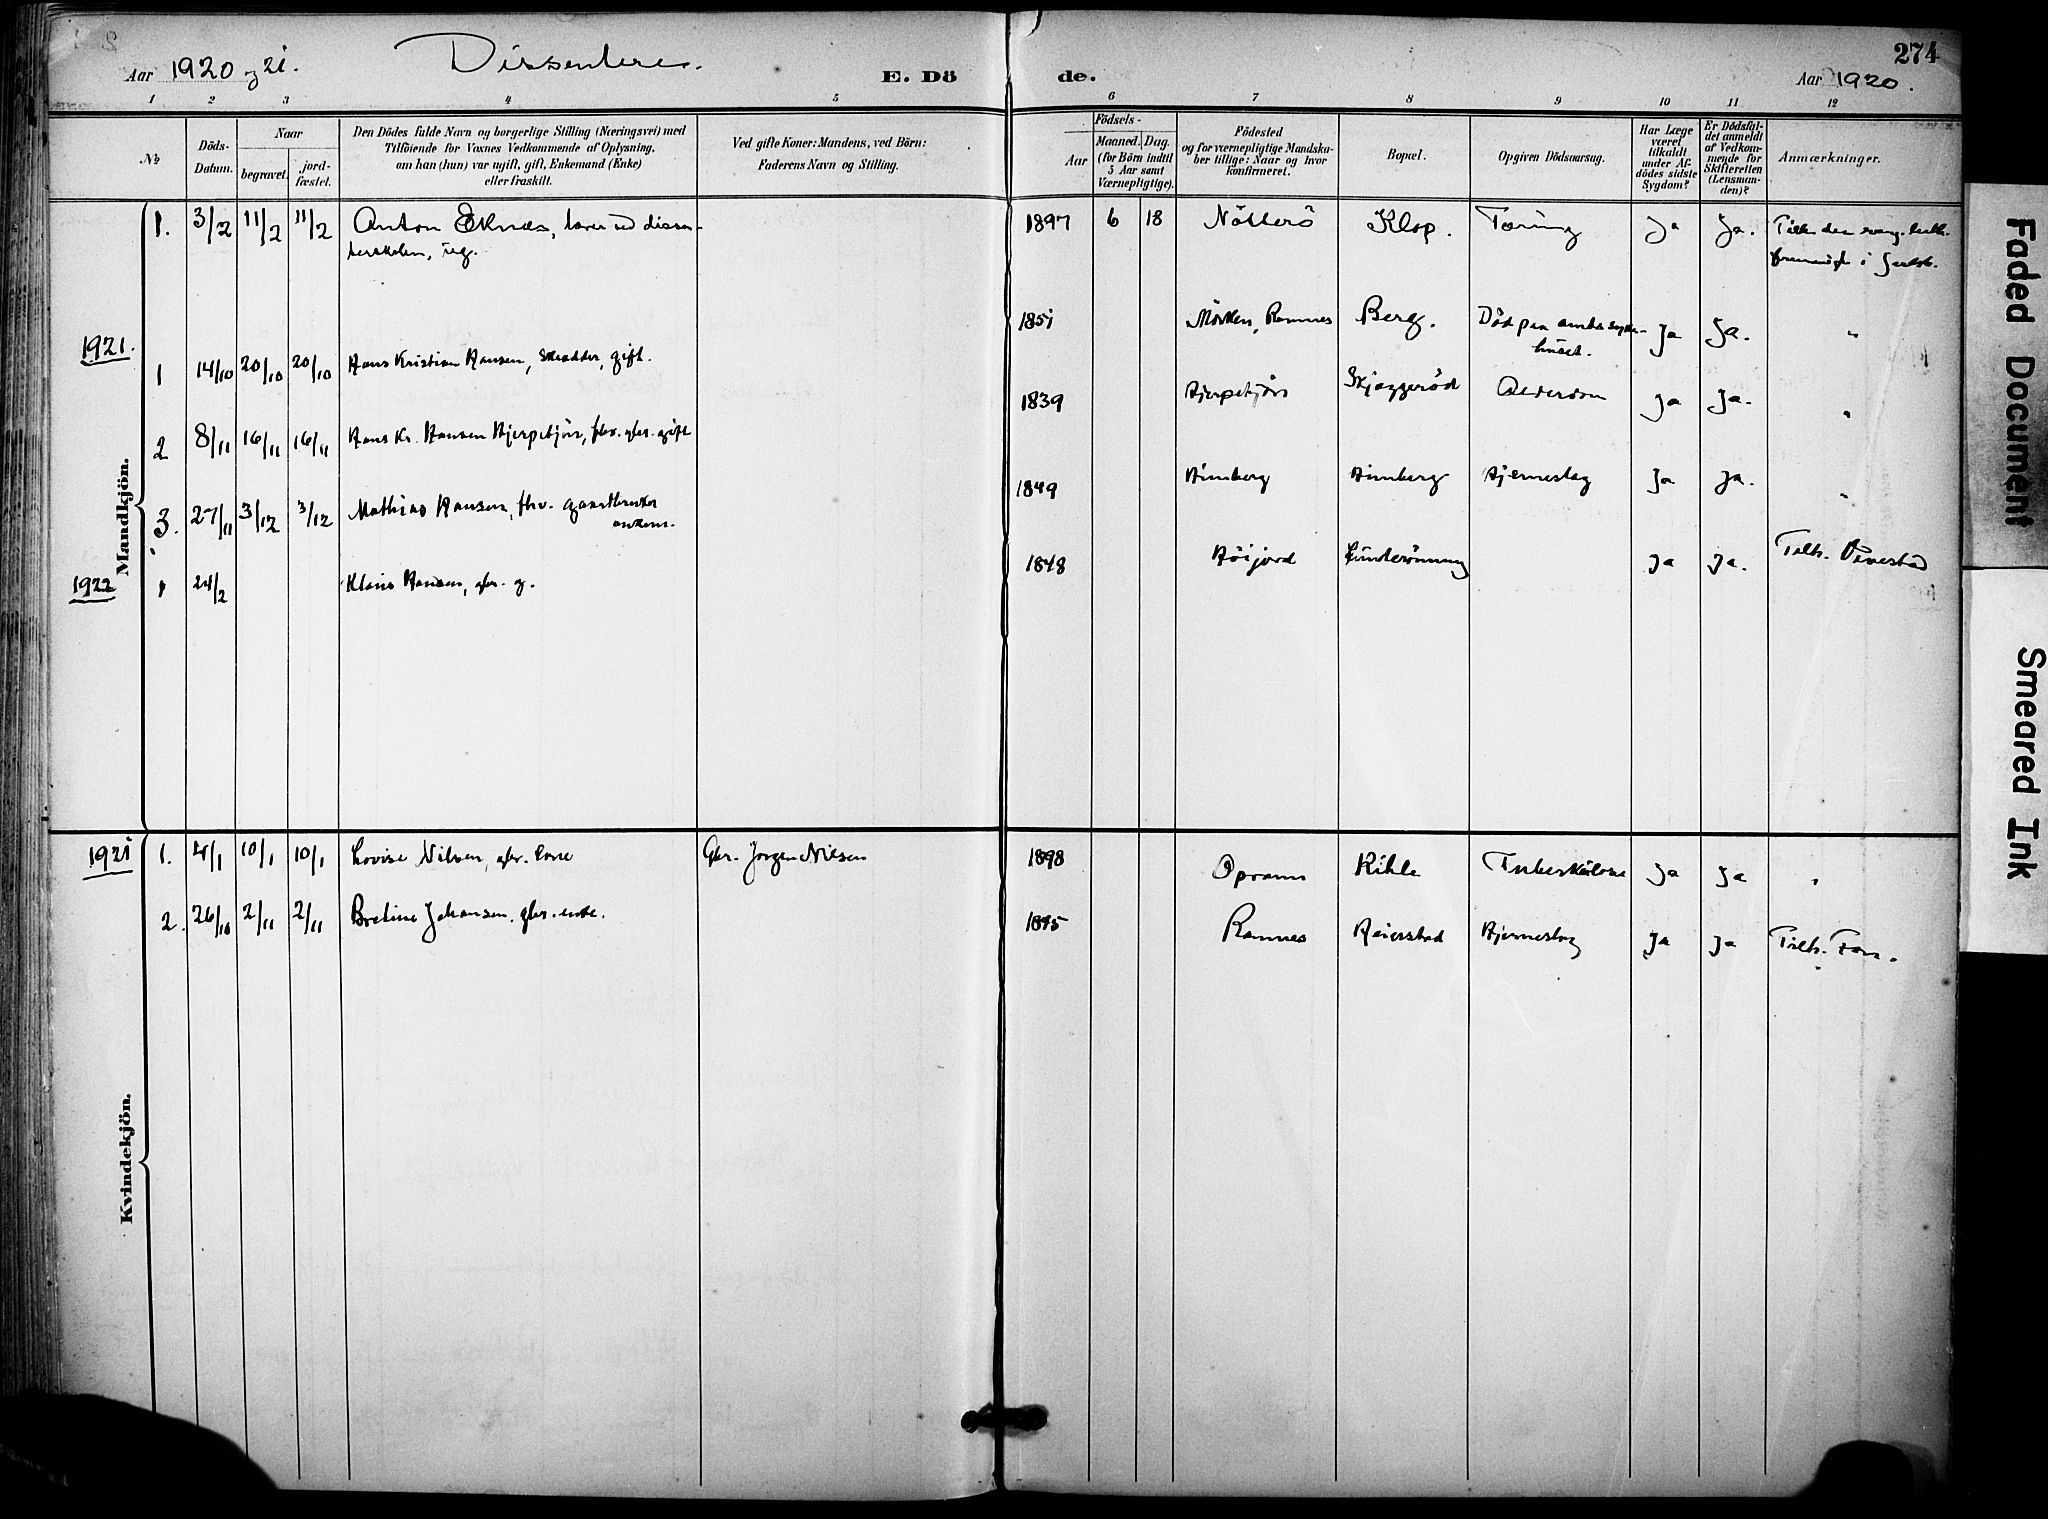 Aar 1920 og 21. Dissentere. E. Döde. Aar 1920. 274
1 2 3 4 5 6 7 8 9 10 11 12
No
Döds-Datum.
Naar
begravet.
jord-fæstet.
Den Dödes fulde Navn og borgerlige Stilling (Næringsvei) med
Tilföiende for Voxnes Vedkommende af Oplysning,
om han (hun) var ugift, gift, Enkemand (Enke)
eller fraskilt.
Ved gifte Koner: Mandens, ved Börn:
Faderens Navn og Stilling.
Födsels-
Aar
Maaned. Dag.
(for Börn indtil
5 Aar samt
Værnepligtige).
Födested
og for værnepligtige Mandska-
ber tillige: Naar og hvor
konfirmeret.
Bopæl.
Opgiven Dödsaarsag.
Har Læge
været
tilkaldt
under Af-
dödes sidste
Sygdom?
Er Dödsfal-
det anmeldt
af Vedkom-
mende for
Skifteretten
(Lensman-
den)?
Anmærkninger.
Mandkjön.
1. 3/2 11/2 11/2 Anton Eknæs, lærer ved dissen- 1897 6 18 Nötterö Klop. Tæring Ja Ja. Tilh. den evang. luth.
terskolen, ug. i Jarlsb.
1921.
1 14/10 20/10 20/10 Hans Kristian Hansen, skradder, gift. 1851 Mörken, Ramnes Berg. Död paa amtssyke- Ja Ja. "
huset.
2 8/11 16/11 16/11 Hans Kr. Hansen Hjerpetjön, fhv. gbr. gift 1839 Hjerpetjörn Skjæggeröd Alderdom Ja Ja. "
3. 27/11 3/12 3/12 Mathias Hansen, fhv. gaardbruker 1849 Himberg Himberg Hjerneslag Ja Ja. "
enkem.
1922
1 24/2 Klaus Hansen, gbr. g. 1848 Höijord Ja Ja. Tilh. Vivestad
Kvindekjön.
1921 1. 4/1 10/1 10/1 Lovise Nilsen, gbr. kone Gbr. Jörgen Nilsen 1898 Opram Kihle Tuberkulose Ja Ja "
2. 26/10 2/11 2/11 Bretine Johansen, gbr. enke. 1845 Ramnes Reierstad Hjerneslag Ja Ja Tilh. Fon.
Faded Document
Smeared Ink